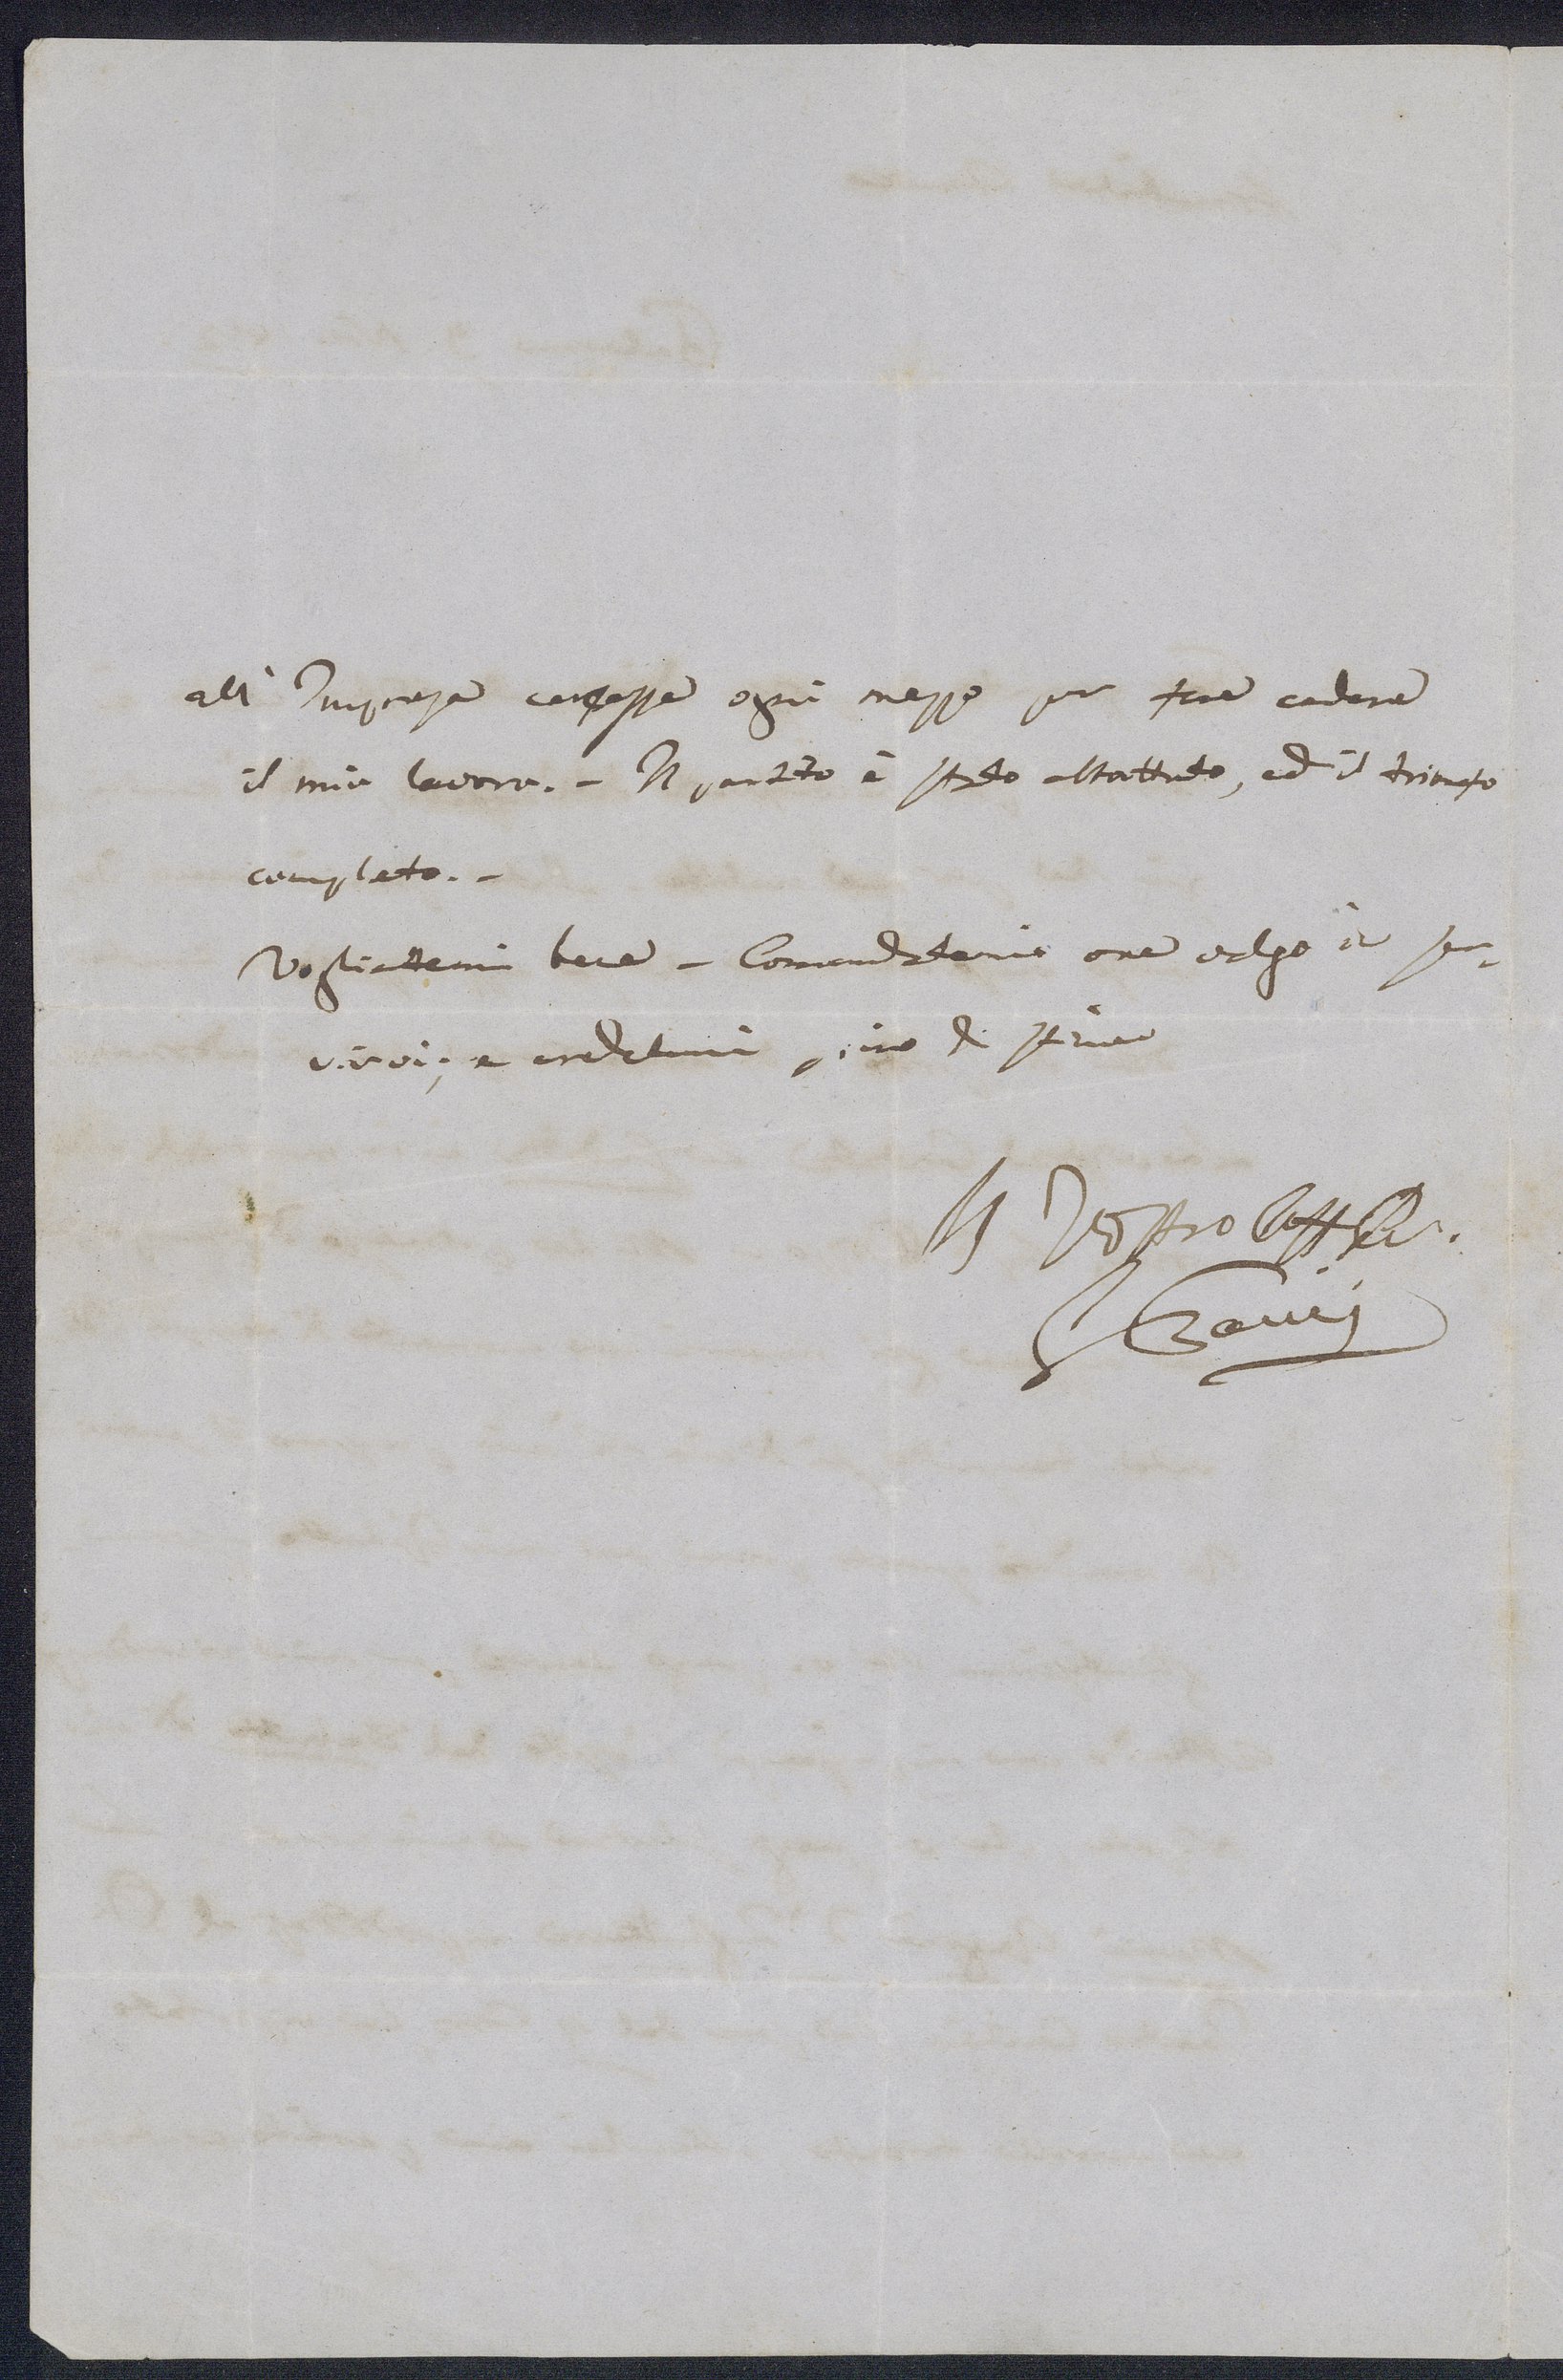 all' Impresa cercasse ogni mezzo per fare cadere
il mio lavoro. - Il partito è stato abbattuto, ed il trionfo
completo. -
Vogliatemi bene - Comandatemi ove valgo a ser-
virvi; e credetemi pieno di stima
Il Vostro